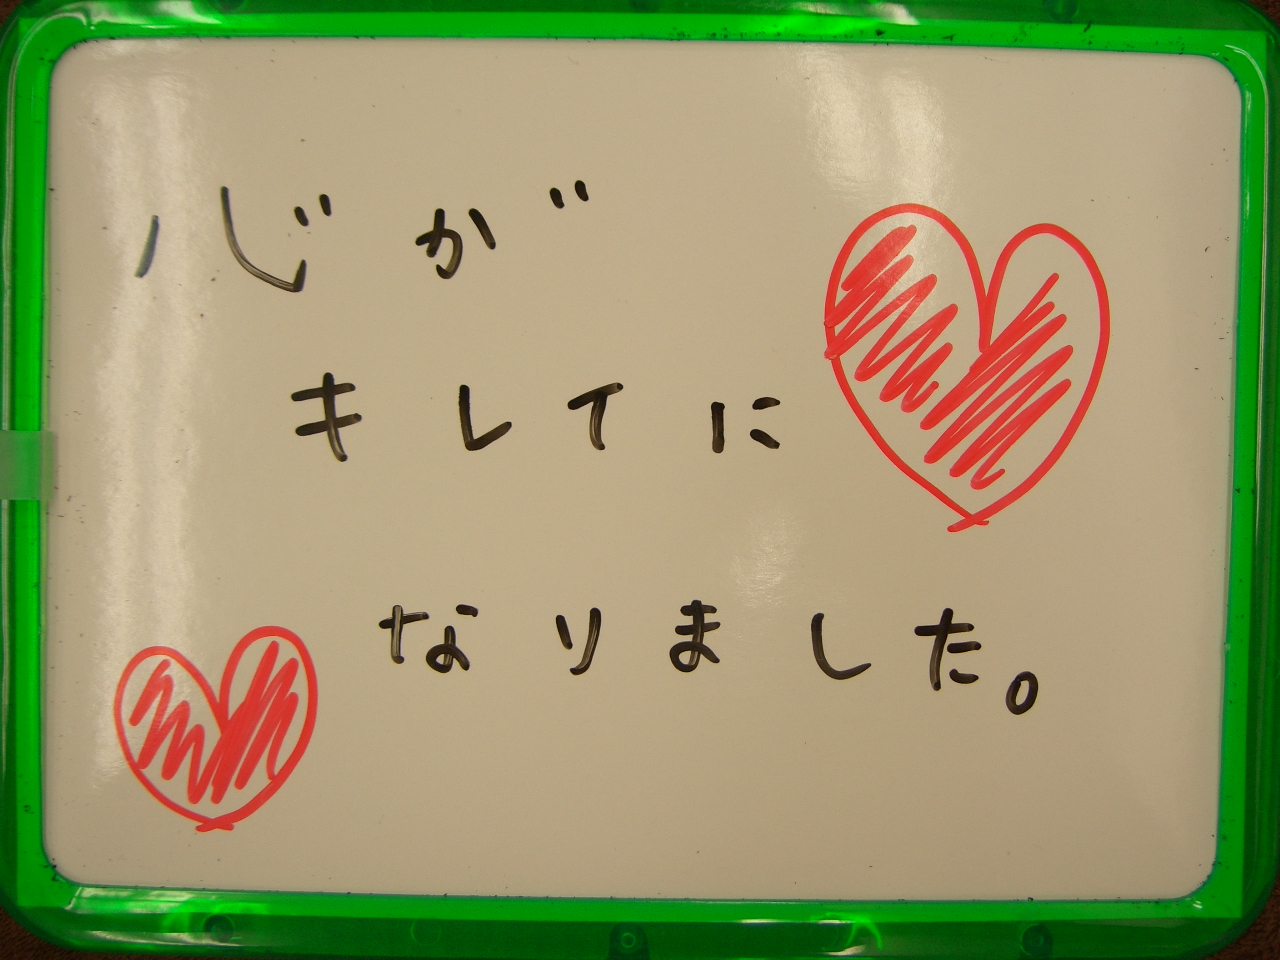 心が
キレイに
なりました。